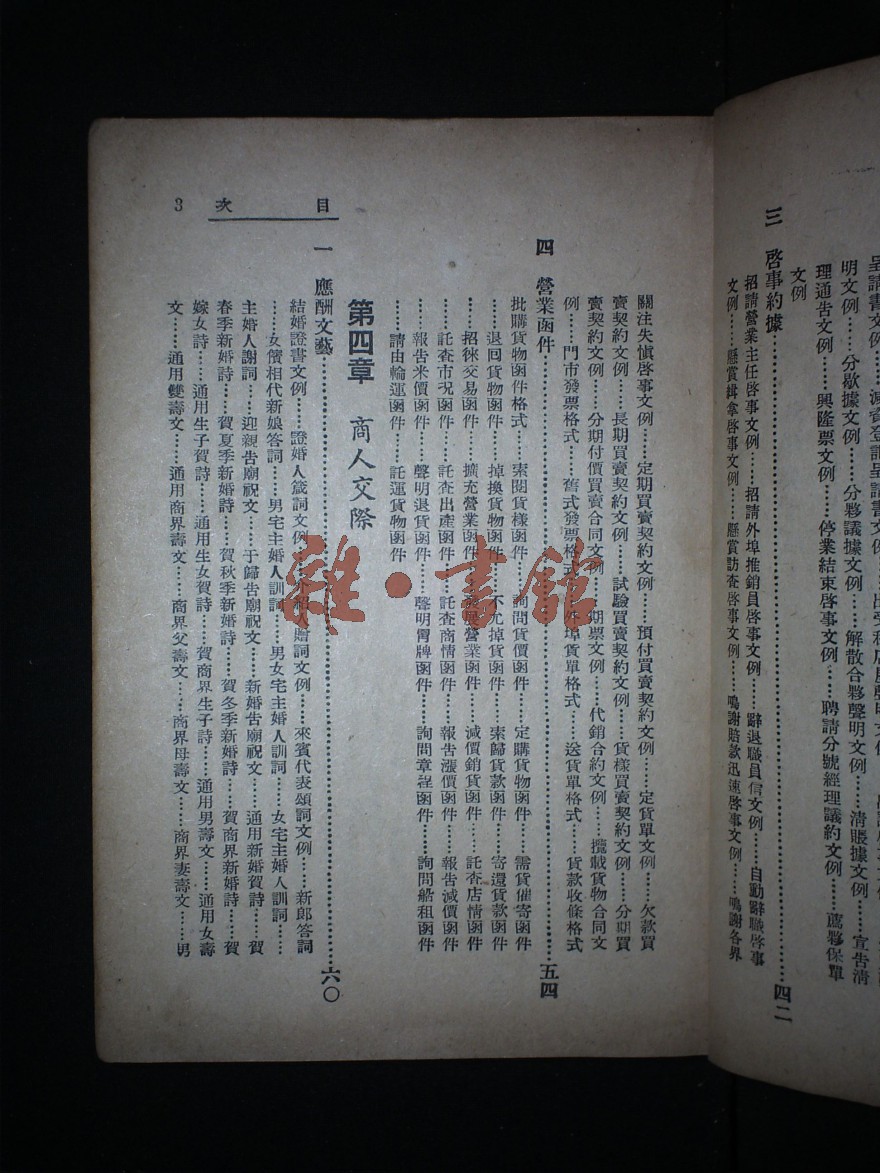 三　啓事約據……四二
招請營業主任啓事文例……招請外埠推銷員啓事文例……辭退職員信文例……自動辭職啓事
文例……懸賞緝拿啓事文例……懸賞訪查啓事文例……鳴謝賠款迅速啓事文例……鳴謝各界
目次　3
關注失愼啓事文例……定期買賣契約文例……預付買賣契約文例……定貨單文例……欠款買
賣契約文例……長期買賣契約文例……試驗買賣契約文例……貨樣買賣契約文例……分期買
賣契約文例……分期付價買賣合同文例……期票文例……代銷合約文例……攬載貨物合同文
例……門市發票格式……舊式發票格式……外埠貨單格式……送貨單格式……貨款收條格式
四　營業函件……五四
批購貨物函件格式……索閱貨樣函件……詢問貨價函件……定購貨物函件……需貨催寄函件
……退回貨物函件……掉換貨物函件……不允掉貨函件……索歸貨款函件……寄還貨款函件
……招徠交易函件……擴充營業函件……發展營業函件……減價銷貨函件……託查店情函件
……託查市况函件……託查出產函件……託查商情函件……報告漲價函件……報告減價函件
……報告米價函件……聲明退貨函件……聲明冐牌函件……詢問章程函件……詢問船租函件
……請由輪運函件……託運貨物函件
第四章　商人交際
一　應酬文藝……六〇
結婚證書文例……證婚人箴詞文例……介紹人贈詞文例……來賓代表頌詞文例……新郎答詞
……女儐相代新娘答詞……男宅主婚人訓詞……男女宅主婚人訓詞……女宅主婚人訓詞……
主婚人謝詞……迎親告廟祝文……于歸告廟祝文……新婚告廟祝文……通用新婚賀詩……賀
春季新婚詩……賀夏季新婚詩……賀秋季新婚詩……賀冬季新婚詩……賀商界新婚詩……賀
嫁女詩……通用生子賀詩……通用生女賀詩……賀商界生子詩……通用男壽文……通用女壽
文……通用雙壽文……通用商界壽文……商界父壽文……商界母壽文……商界妻壽文……男
雜·書館